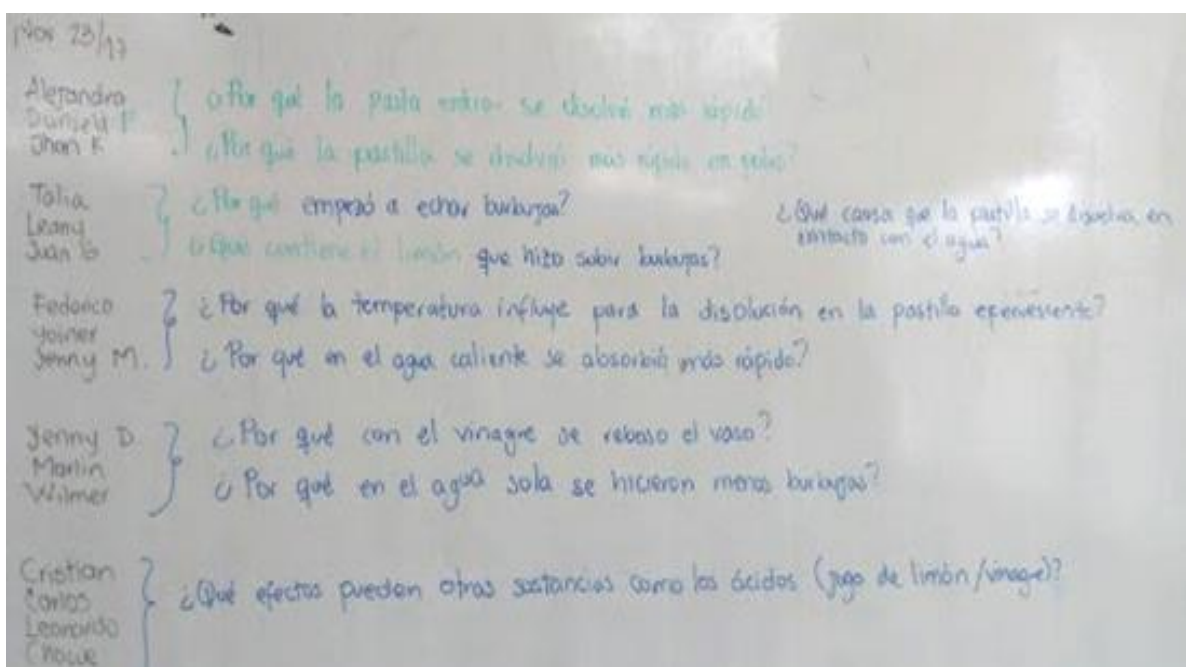 Nov 23/17
Alejandra
Daniela F
Jhon F
¿Por qué la pasta entra se disolvió más rápido
¿Por qué la pastilla se disolvió más rápido en polvo?
Talia
Leany
Juan
¿Por qué empezó a echar burbujas?
¿Que contiene el limón que hizo subir burbujas?
¿Qué causa que la pastilla se disuelva en
contacto con el agua?
Federico
Yoiner
Jenny M.
¿Por qué la temperatura influye para la disolución en la pastilla efervescente?
¿Por qué en el agua caliente se absorbió más rápido?
Jenny D
Marlin
Wilmer
¿Por qué con el vinagre se reboso el vaso?
¿Por qué en el agua sola se hicieron menos burbujas?
Cristian
Carlos
Leonardo
Choque
¿Qué efectos pueden otras sustancias como los ácidos (jugo de limón/vinagre)?